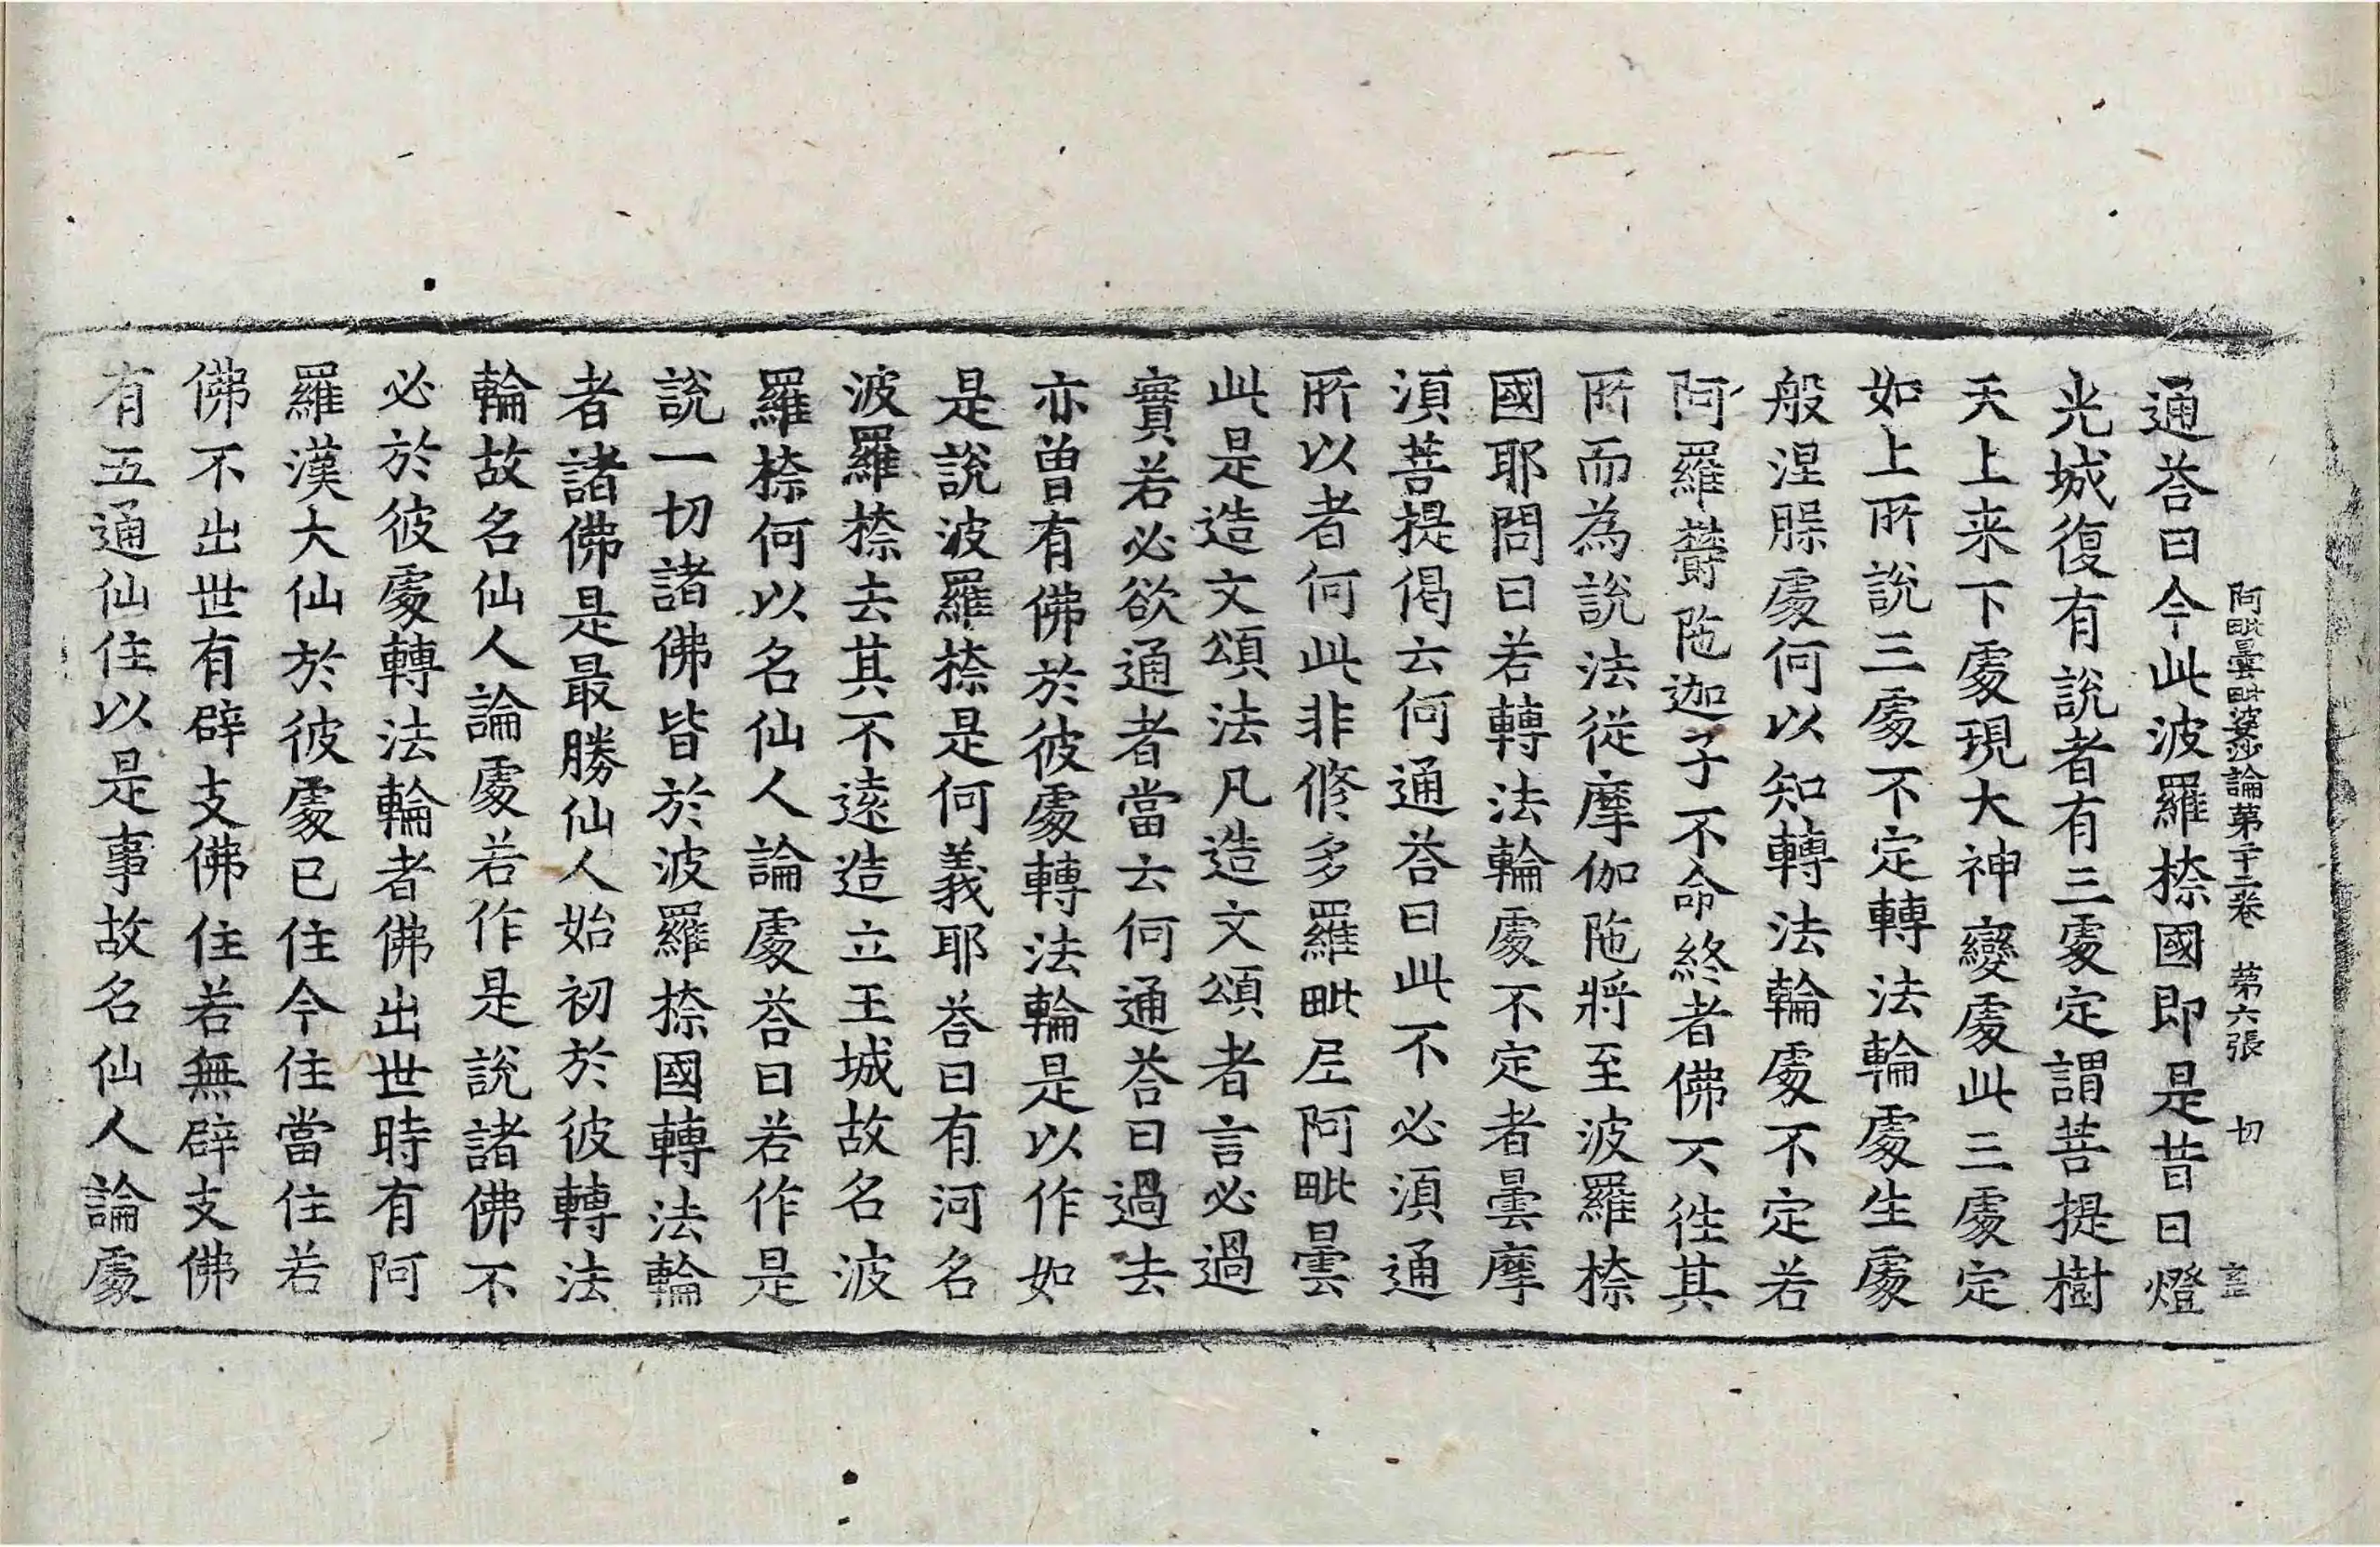 阿毗曇毗婆沙論第二十一卷　第六張　切
通荅曰今此波羅㮈國即是昔日燈
光城復有說者有三處定謂菩提樹
天上来下處現大神變處此三處定
如上所說三處不定轉法輪處生處
般涅槃處何以知轉法輪處不定若
阿羅欝陁迦子不命終者佛不往其
所而為說法從摩伽陁將至波羅㮈
國耶問曰若轉法輪處不定者曇摩
湏菩提偈云何通荅曰此不必湏通
所以者何此非修多羅毗尼阿毗曇
此是造文頌法凡造文頌者言必過
實若必欲通者當云何通荅曰過去
亦曾有佛於彼處轉法輪是以作如
是說波羅㮈是何義耶荅曰有河名
波羅㮈去其不遠造立王城故名波
羅㮈何以名仙人論處荅曰若作是
說一切諸佛皆於波羅㮈國轉法輪
者諸佛是最勝仙人始初於彼轉法
輪故名仙人論處若作是說諸佛不
必於彼處轉法輪者佛出世時有阿
羅漢大仙於彼處已住今住當住若
佛不出世有辟支佛住若無辟支佛
有五通仙住以是事故名仙人論處